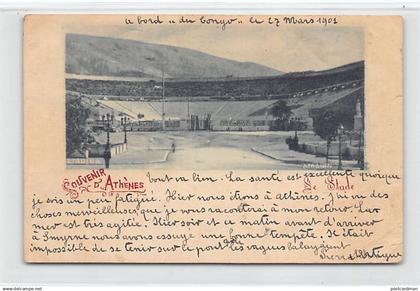 a bord "du Congo" le 27 Mars 1901
SOUVENIR
D'ATHÈNES
Le Stade
Tout va bien. La santé est excellente quoique
je sois un peu fatigué. Hier nous étions à athènes. J'ai vu des
choses merveilleuses que je vous raconterai à mon retour. La
mer est très agitée. Hier soir et ce matin avant d'arriver
à Smyrne nous avons essuyé une bonne tempête. Il était
impossible de se tenir sur le pont les vagues balayaient
Pierre
postcardman